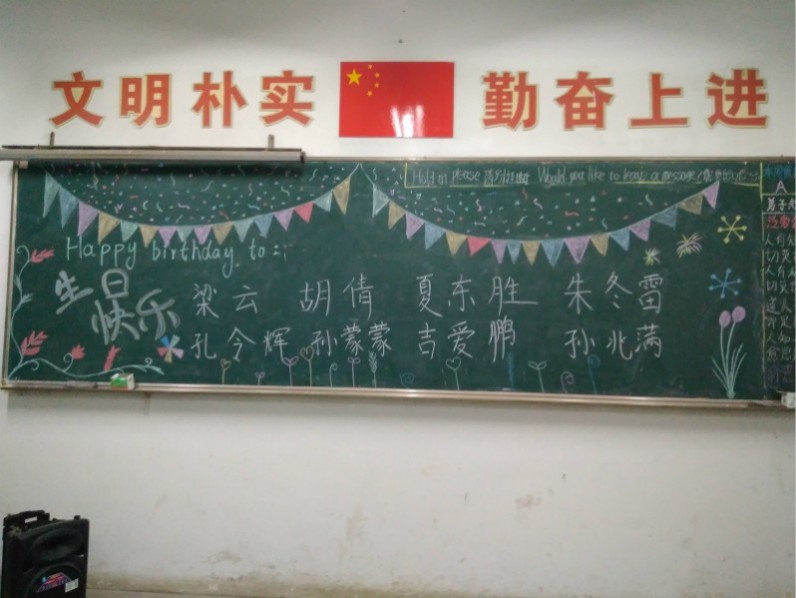 文明朴实 勤奋上进
Hold on please Would you like to leave a message
Happy birthday to:
生日快乐
梁云 胡倩 夏东胜 朱冬雷
孔令辉 孙蒙蒙 吉爱鹏 孙兆满
A